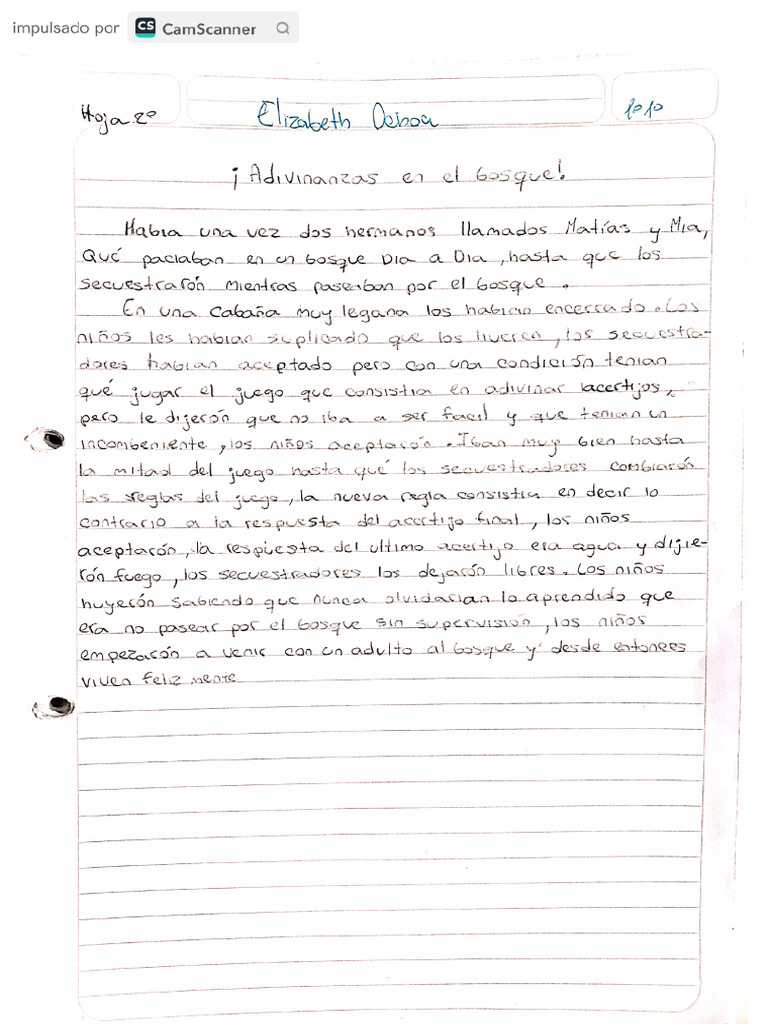 impulsado por CS CamScanner
Hoja 2º Elizabeth Ochoa 1010
¡Adivinanzas en el bosque!
Habia una vez dos hermanos llamados Matías y Mia,
Qué paciaban en un bosque Dia a Dia, hasta que los
secuestrarón mientras paseaban por el bosque.
En una cabaña muy legana los habian encerrado. Los
niños les habian suplicado que los liveren, los secuestra-
dores habian aceptado pero con una condición tenian
qué jugar el juego que consistia en adivinar lacertijos,
pero le dijerón que no iba a ser facil y que tenian un
incombeniente, los niños aceptarón. Iban muy bien hasta
la mitad del juego hasta qué los secuestradores cambiarón
las reglas del juego, la nueva regla consistia en decir lo
contrario a la respuesta del acertijo final, los niños
aceptarón, la respuesta del ultimo acertijo era agua y dijie-
rón fuego, los secuestradores los dejarón libres. Los niños
huyerón sabiendo que nunca olvidarian lo aprendido que
era no pasear por el bosque sin supervisión, los niños
empezarón a venir con un adulto al bosque y desde entonces
viven feliz mente